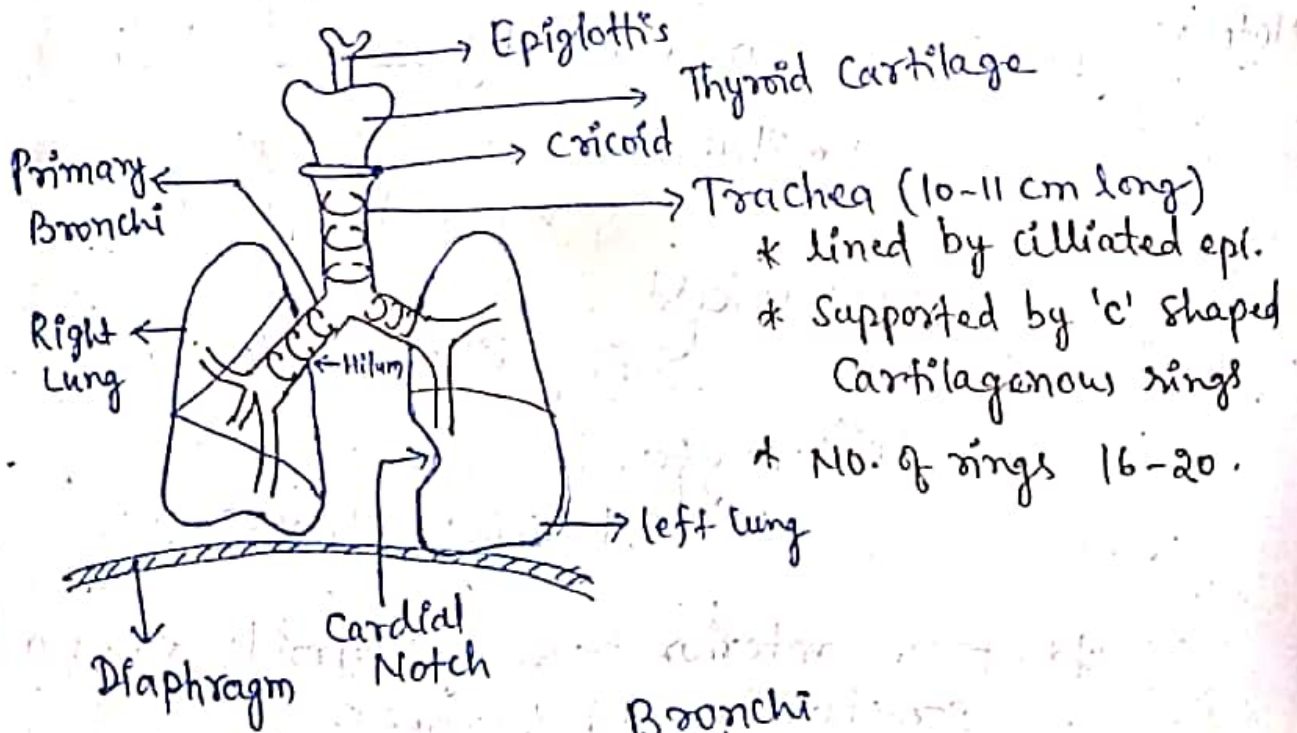 Epiglottis
Thyroid Cartilage
Cricoid
Primary
Bronchi
Trachea (10-11 cm long)
* lined by cilliated epi.
* Supported by 'c' shaped
Cartilagenous rings
* No. of rings 16-20.
Right
Lung
Hilum
left lung
Cardial
Notch
Diaphragm
Bronchi